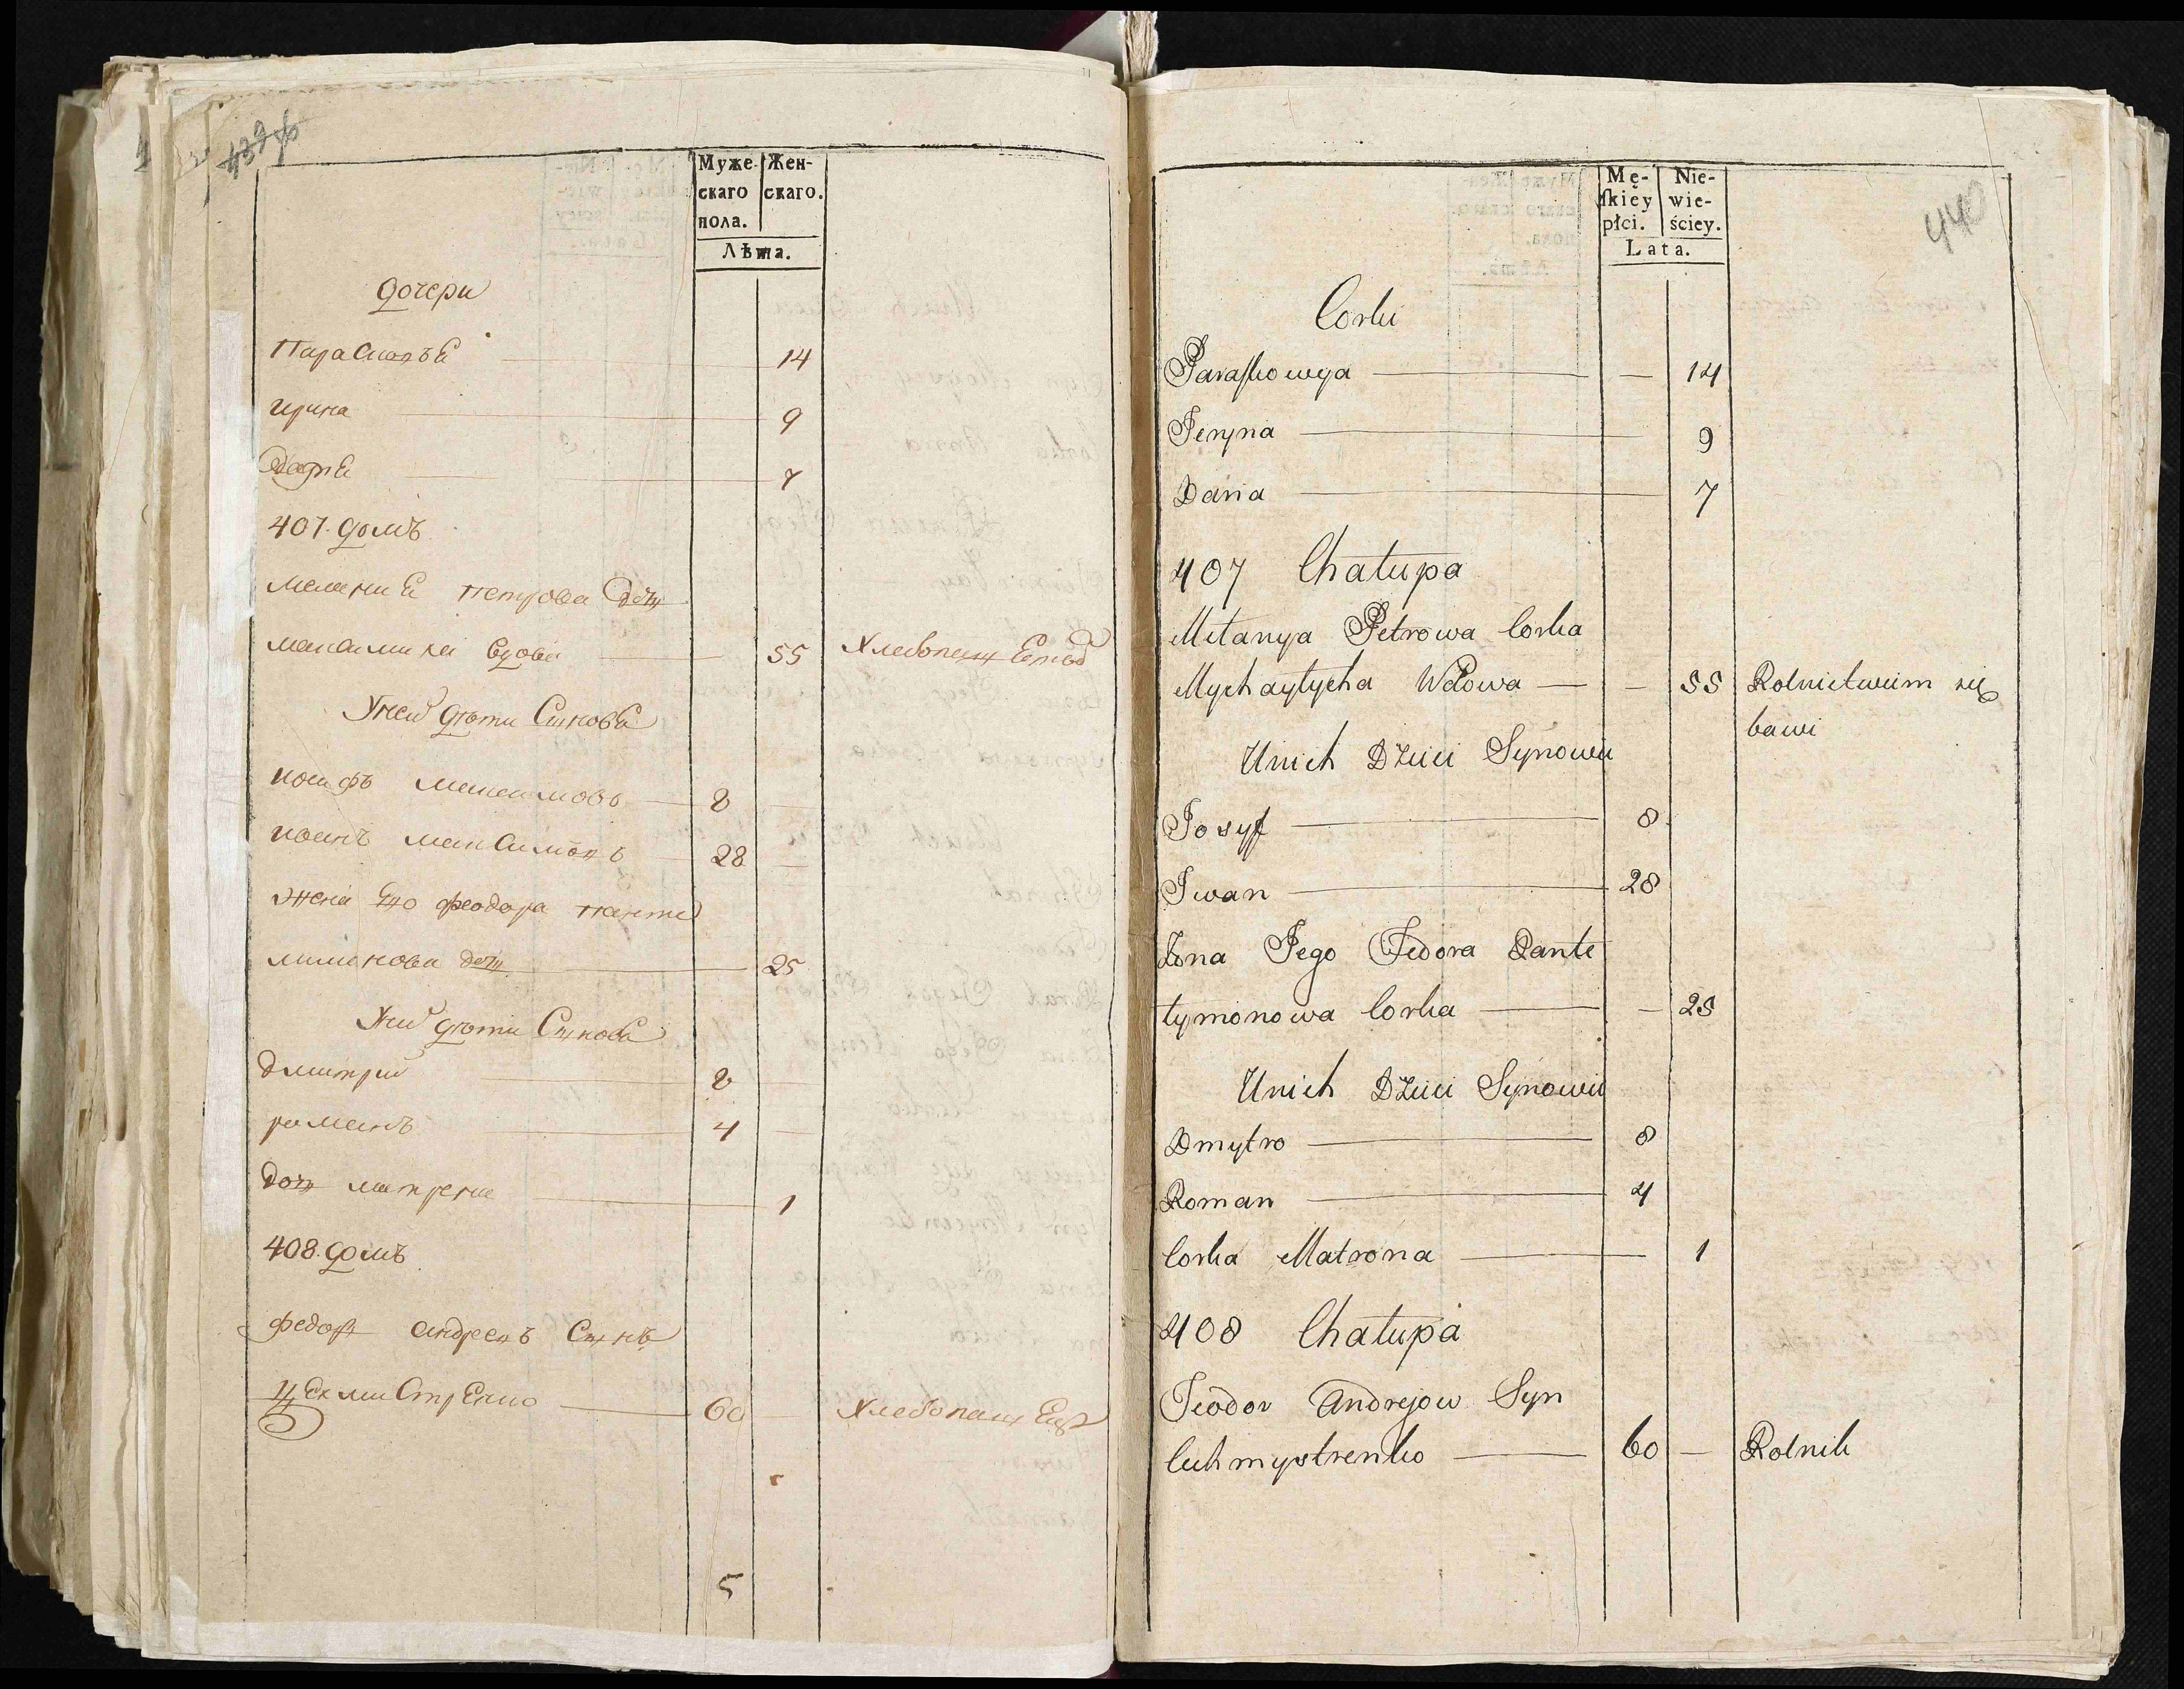 439 об
Муже-
скаго
пола.
Жен-
скаго.
Лѣта.
дочери
Парасковъя 14
ирина 9
Дария 7
407. домъ
мелания петрова дочь
максимиха вдова 55 Хлебопашествод
Унеи дѣти Синовя
иосифъ максимовъ 8
иванъ максимовъ 28
жена его феодора панте
лимонова дочь 25
Уних дѣти Синовя
дмитрий 8
романъ 4
дочь матрена 1
408. домъ
федоръ андреевъ Синъ
Цехмистренко 60 Хлебопашец
5
440
Mę-
ſkiéy
płci.
Nie-
wie-
ściey.
Lata.
Corki
Paraſkowya 14
Jeryna 9
Daria 7
407 Chałupa
Mełanya Petrowa Corka
Mychayłycha Wdowa 55 Rolnictwim się
bawi
Unich Dzieci Synowie
Josyf 8
Iwan 28
Żona Jego Fedora Pante
łymonowa Corka 25
Unich Dzieci Synowie
Dmytro 8
Roman 4
Corka Matrona 1
408 Chałupa
Teodor Andrejow Syn
Cechmystrenko 60 Rolnik